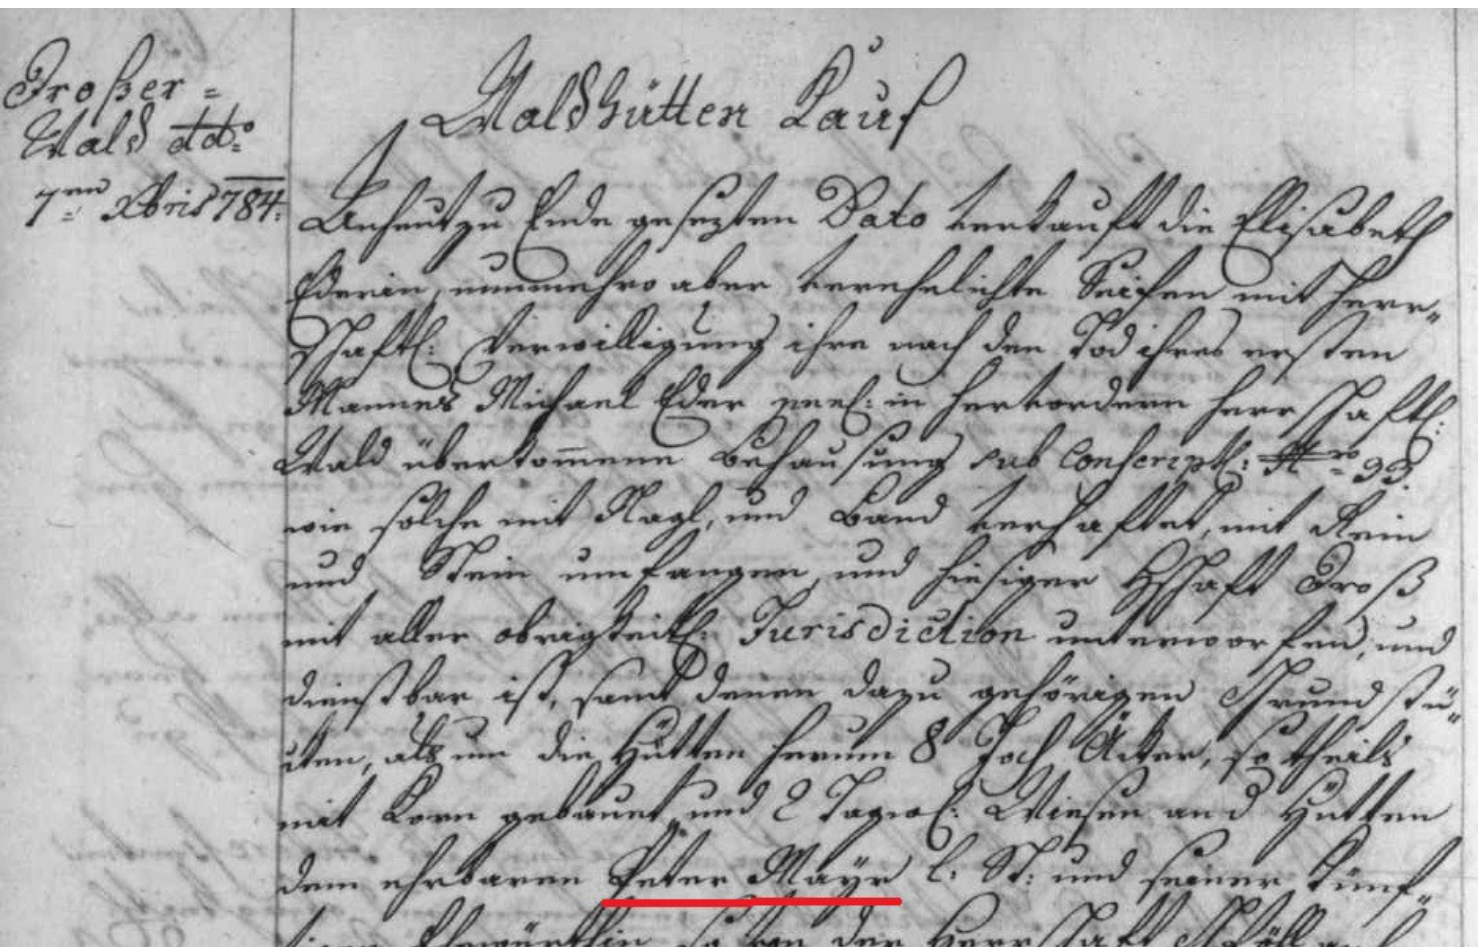 Großer =
Wald dd:o
7=ten Xbris 784.
Waldhütten Kauf
Anheut zu Ende gesezten Dato verkauft die Elisabeth
Ederin, nunmehro aber verehelichte mit herr=
schaftl: Verwilligung ihre nach den Tod ihres ersten
Mannes Michael Eder seel: in hervordern herrschaftl:
Wald überkommene Behausung sub Conscript: Nro 33.
wie solche mit Nagl, und Band verhaftet, mit Rein
und Stein umfangen, und hiesiger Hschaft Groß
mit aller obrigkeitl: Jurisdiction unterworfen, und
dienstbar ist, samt denen dazu gehörigen Grundstü=
cken, als um die Hütten herum 8 Joch Äcker, so theils
mit Korn gebauet, und 2 Tagw: Wiesen und Hütten
dem ehrbaren Peter Mayr l: St: und seiner künf=
tigen Ehewürthin so von der Herrschaft